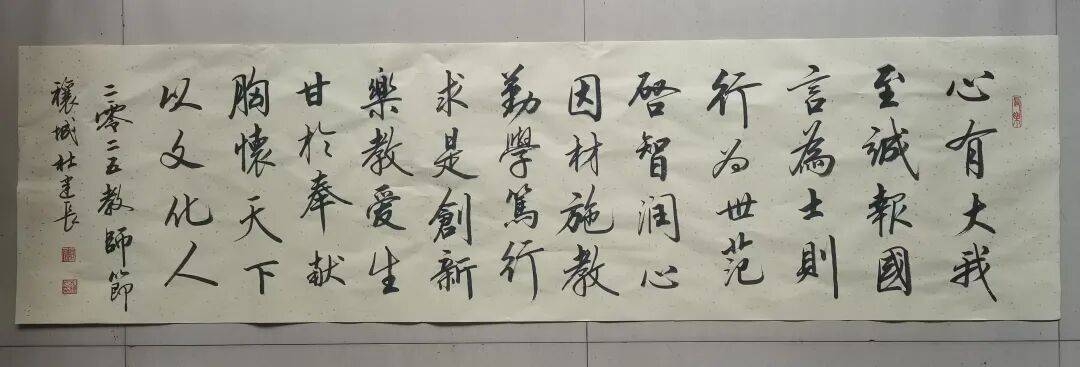 心有大我
至誠報國
言為士則
行为世范
啓智润心
因材施教
勤學篤行
求是創新
樂教愛生
甘於奉献
胸懷天下
以文化人
二零二五教師節
穰城杜建長